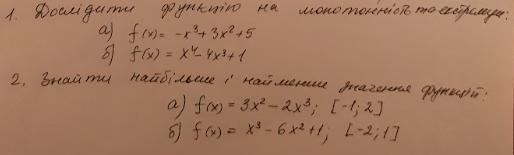 1. Дослідити функцію на монотонність та екстремуми:
а) f(x) = -x³ + 3x² + 5
б) f(x) = x⁴ - 4x³ + 1
2. Знайти найбільше і найменше значення функції:
а) f(x) = 3x² - 2x³; [-1; 2]
б) f(x) = x³ - 6x² + 1; [-2; 1]